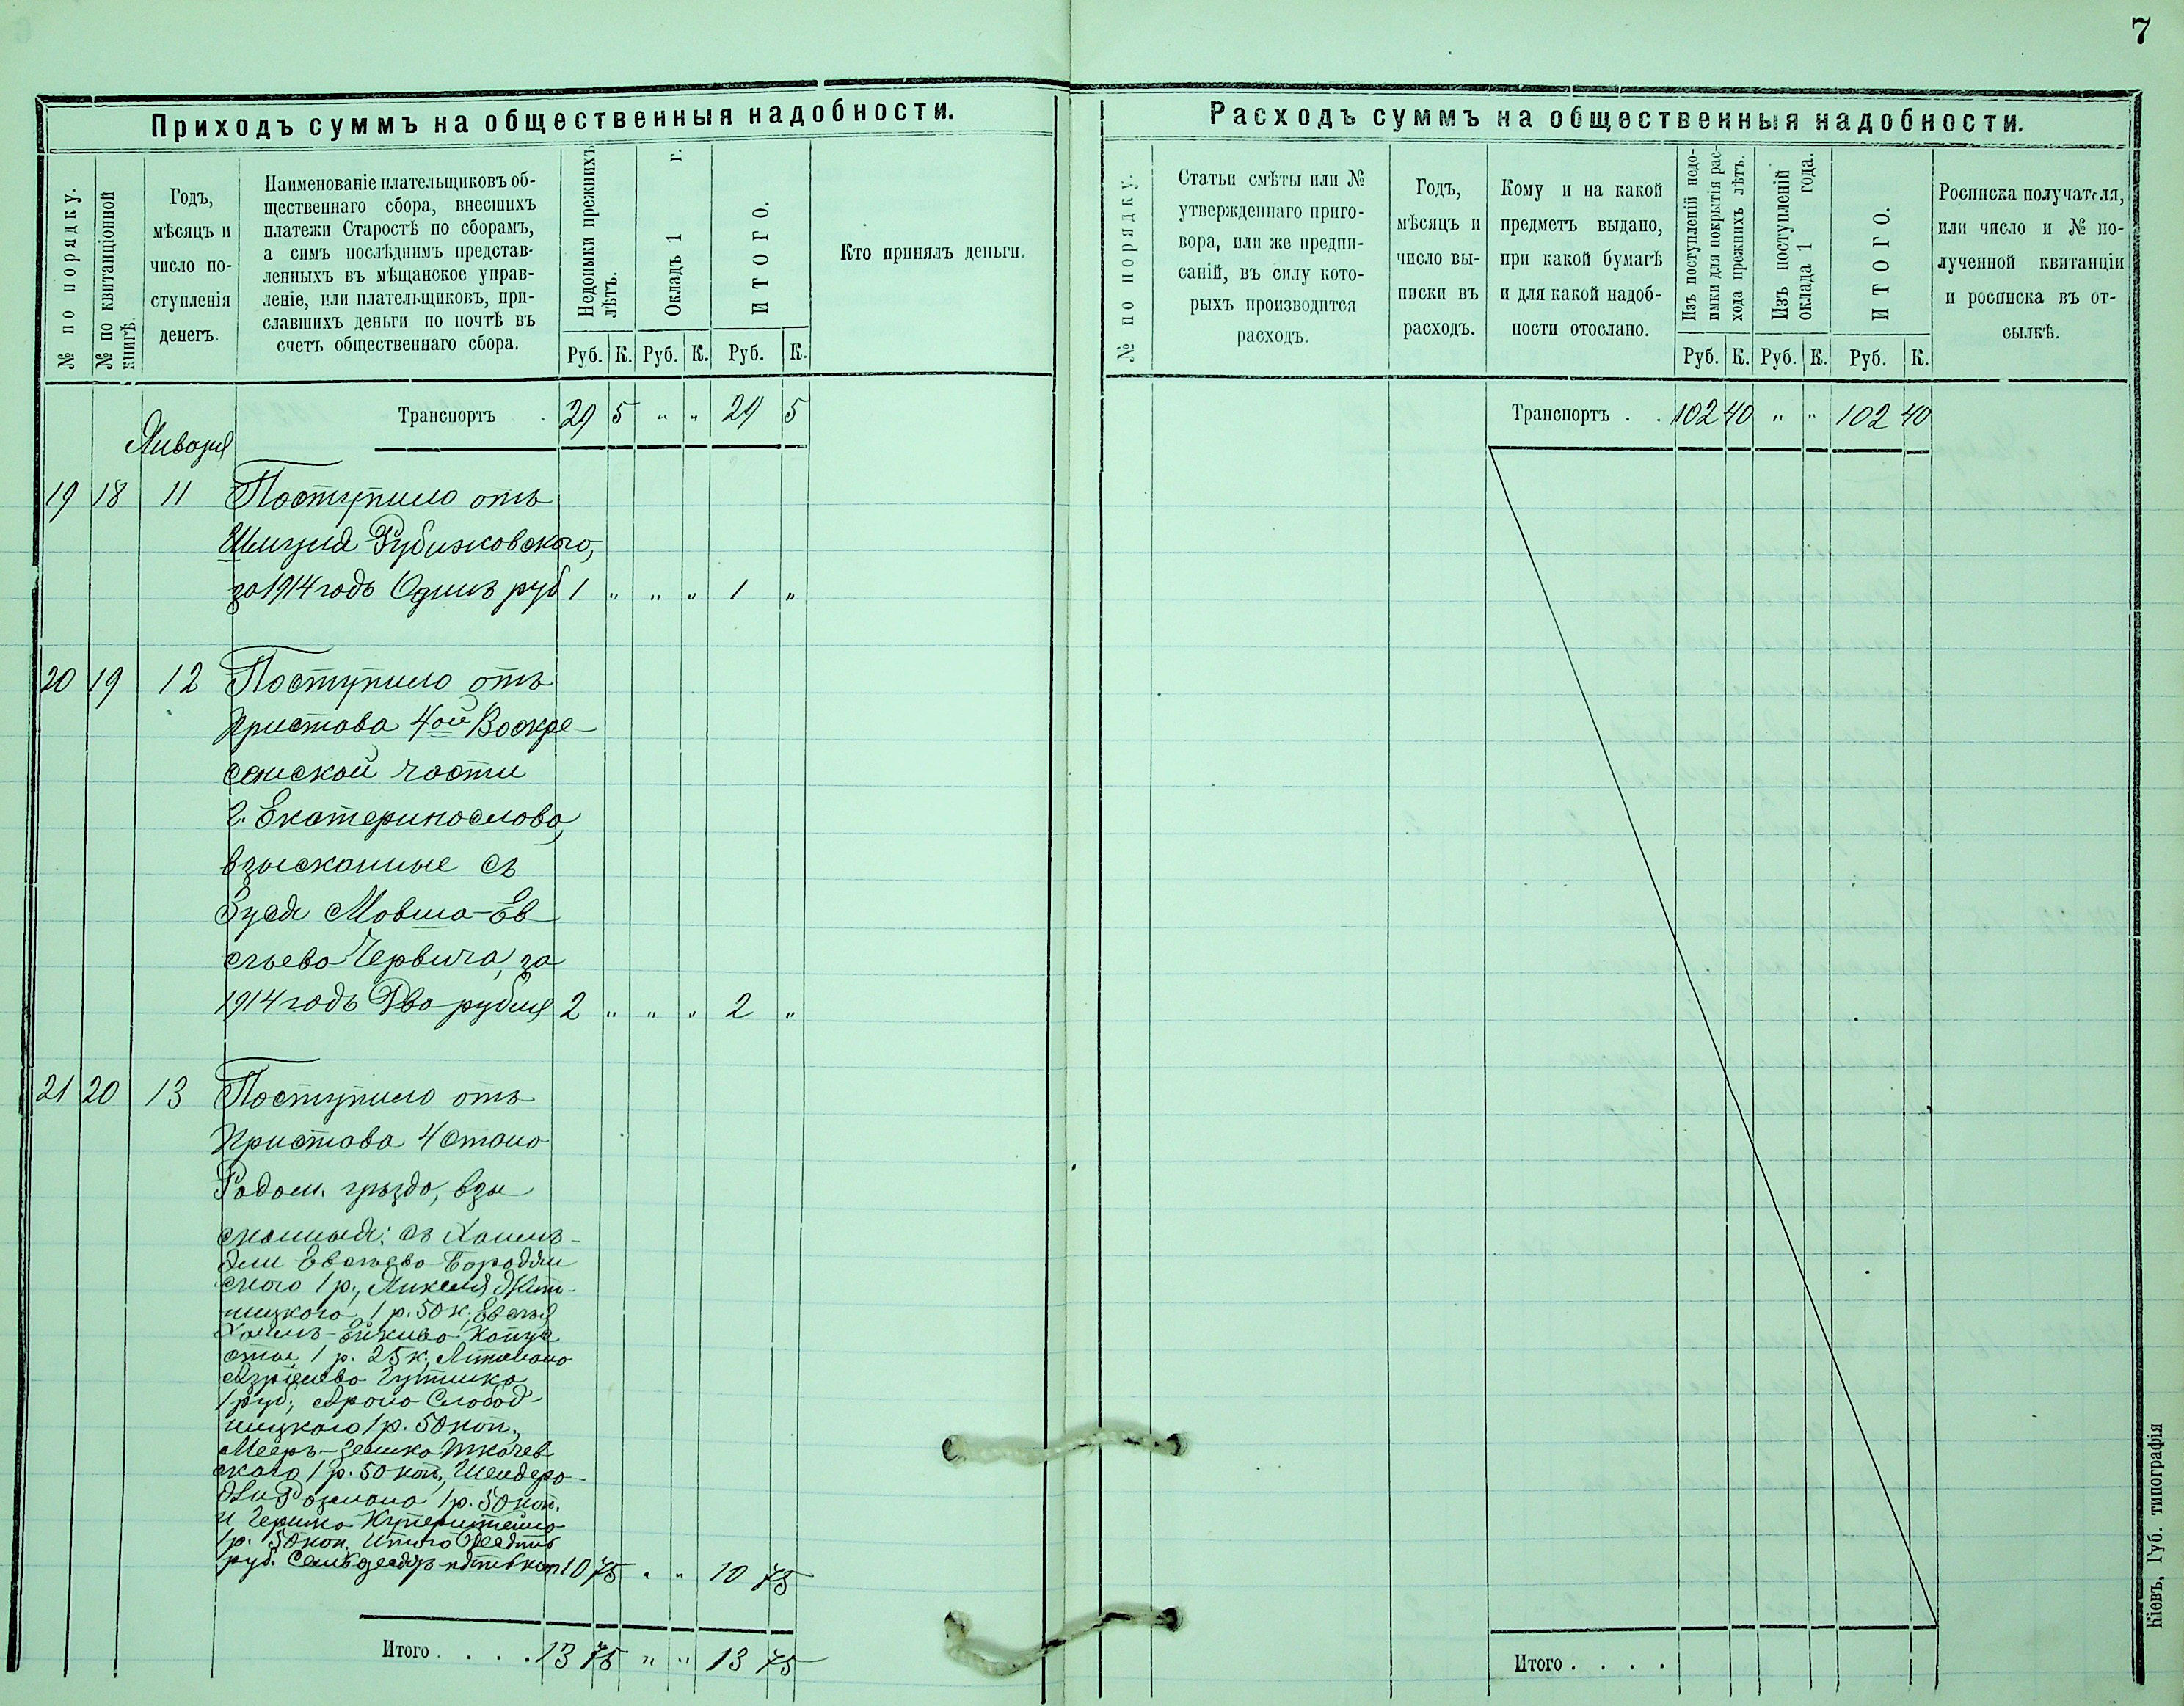 7
Приходъ суммъ на общественныя надобности.
№ по порядку.
№ по квитанціонной
книгѣ.
Годъ,
мѣсяцъ и
число по-
ступленія
денегъ.
Наименованіе плательщиковъ об-
щественнаго сбора, внесшихъ
платежи Старостѣ по сборамъ,
а симъ послѣднимъ представ-
ленныхъ въ мѣщанское управ-
леніе, или плательщиковъ, при-
славшихъ деньги по почтѣ въ
счетъ общественнаго сбора.
Недоимки прежнихъ
лѣтъ.
Окладъ 1 г.
ИТОГО.
Руб. К. Руб. К. Руб. К.
Кто принялъ деньги.
Транспортъ . 29 5 " " 29 5
Января
19 18 11 Поступило отъ
Рубижовского,
за 1914 годъ Одинъ руб 1 " " " 1 "
20 19 12 Поступило отъ
Пристава 4ой Воскре-
сенской части
г. Екатеринослава,
взысканные съ
Мовша-Ев
сѣева Червича, за
1914 годъ Два рубля 2 " " " 2 "
21 20 13 Поступило отъ
Пристава 4 стана
Радом. уѣзда, взы
сканныя: съ Хаимъ-
Евсѣева Бородян
ского 1 р., Янкеля Жит-
ницкого 1 р. 50 к., Евсѣя
Хаимъ- Капус
1 р. 25 к.,
Азріелева Гутника
1 руб., Арона Слобод-
ницкого 1 р. 50 коп.,
Мееръ- Ткачев
ского 1 р. 50 коп., Шендера
Розмана 1 р. 50 коп.
и Гершка Куперштейна
1 р. 50 коп. Итого Десять
руб. Семьдесятъ пять коп 10 75 " " 10 75
Итого . . . . 13 75 " " 13 75
Расходъ суммъ на общественныя надобности.
№ по порядку.
Статьи смѣты или №
утвержденнаго приго-
вора, или же предпи-
саній, въ силу кото-
рыхъ производится
расходъ.
Годъ,
мѣсяцъ и
число вы-
писки въ
расходъ.
Кому и на какой
предметъ выдано,
при какой бумагѣ
и для какой надоб-
ности отослано.
Изъ поступленій недо-
имки для покрытія рас-
хода прежнихъ лѣтъ.
Изъ поступленій
оклада 1 года.
ИТОГО.
Руб. К. Руб. К. Руб. К.
Росписка получателя,
или число и № по-
лученной квитанціи
и росписка въ от-
сылкѣ.
Транспортъ . . 102 40 " " 102 40
Итого . . . .
Кіевъ, Губ. типографія